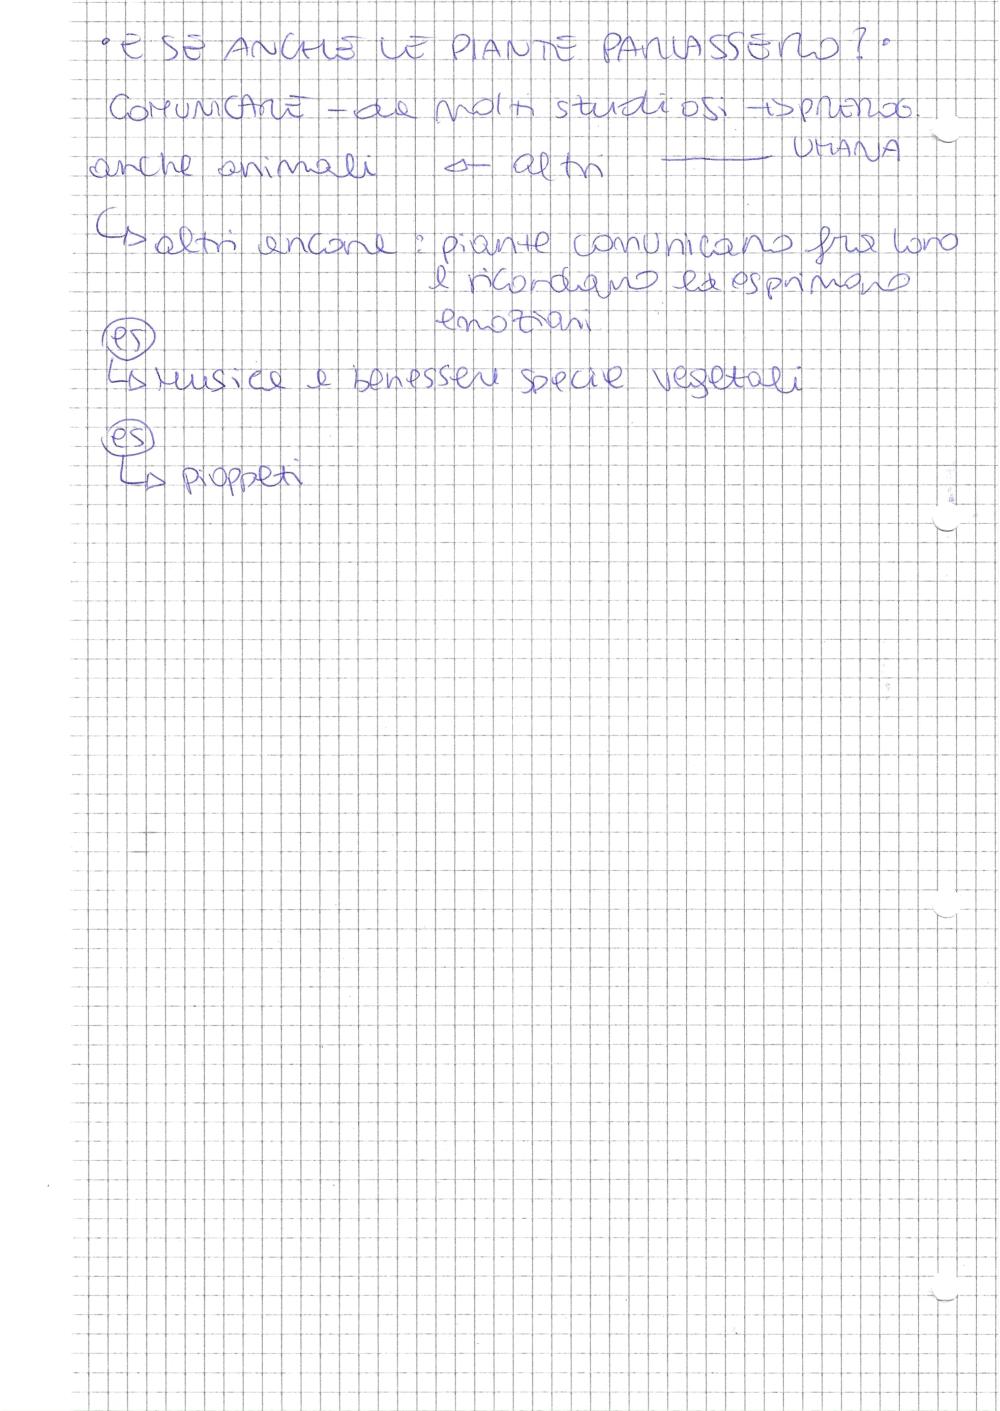 • E SE ANCHE LE PIANTE PARLASSERO? •
COMUNICARE - da molti studiosi → prerog.
UMANA
anche animali ← altri
↳ altri ancora : piante comunicano fra loro
e ricordano ed esprimono
emozioni
es
↳ Musica e benessere specie vegetali
es
↳ pioppeti